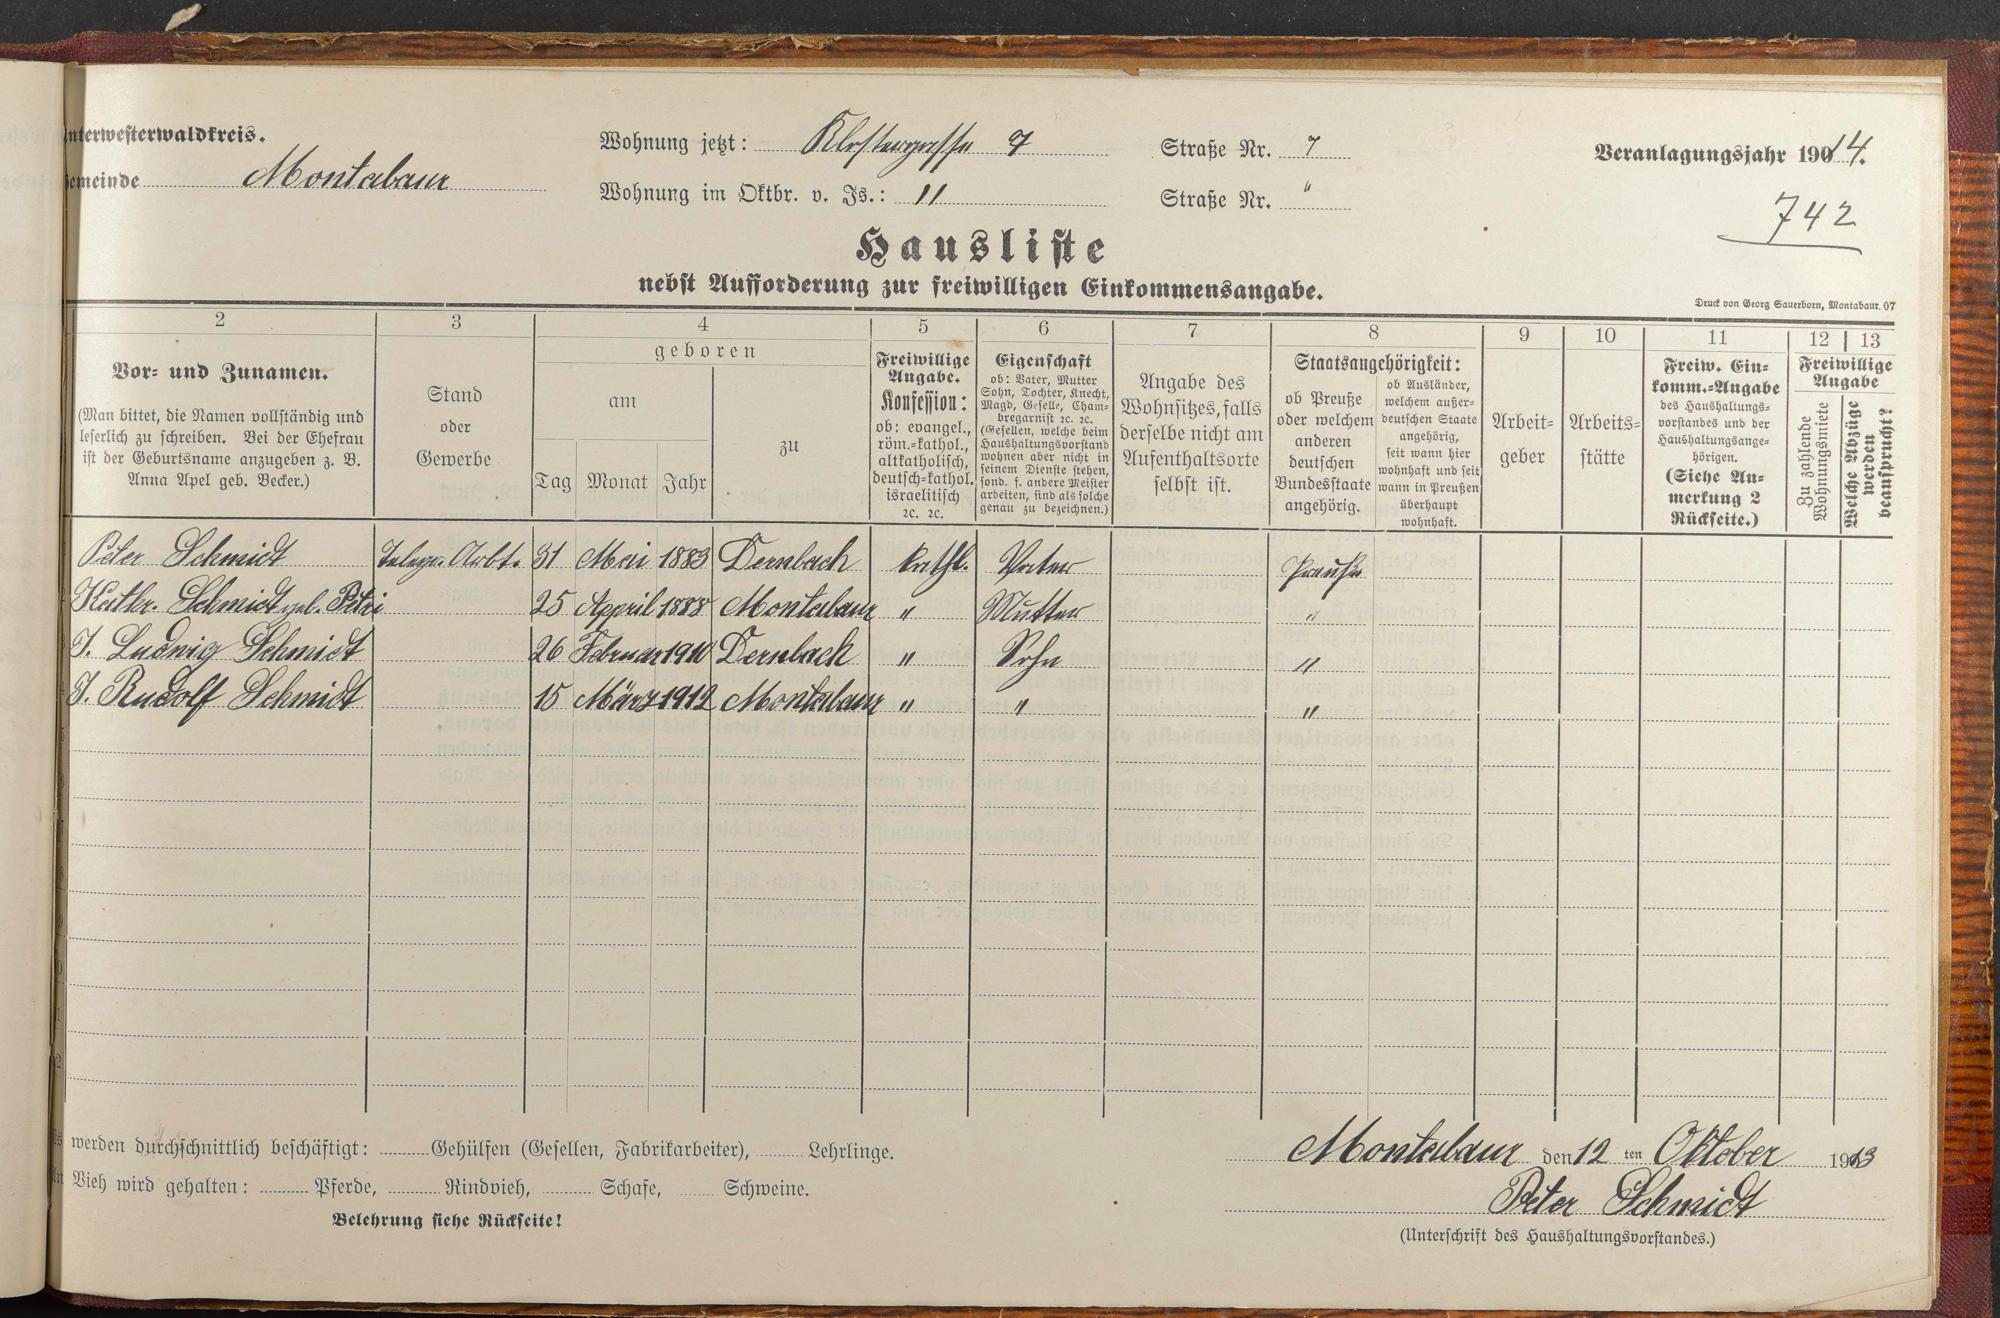 Unterwesterwaldkreis.
Gemeinde Montabaur
Wohnung jetzt: Klostergasse 7 Straße Nr. 7
Wohnung im Oktbr. v. Js.: 11 Straße Nr. "
Veranlagungsjahr 19014.
742
Hausliste
nebst Aufforderung zur freiwilligen Einkommensangabe.
Druck von Georg Sauerborn, Montabaur. 07
2 3 4 5 6 7 8 9 10 11 12 13
Vor- und Zunamen.
(Man bittet, die Namen vollständig und
leserlich zu schreiben. Bei der Ehefrau
ist der Geburtsname anzugeben z. B.
Anna Apel geb. Becker.)
Stand
oder
Gewerbe
geboren
am
Tag Monat Jahr
zu
Freiwillige
Angabe.
Konfession:
ob: evangel.,
röm.-kathol.,
altkatholisch,
deutsch-kathol.
israelitisch
2c. 2c.
Eigenschaft
ob: Vater, Mutter
Sohn, Tochter, Knecht,
Magd, Geselle, Cham-
bregarnist 2c. 2c.
(Gesellen, welche beim
Haushaltungsvorstand
wohnen aber nicht in
seinem Dienste stehen,
sond. f. andere Meister
arbeiten, sind als solche
genau zu bezeichnen.)
Angabe des
Wohnsitzes, falls
derselbe nicht am
Aufenthaltsorte
selbst ist.
Staatsangehörigkeit:
ob Preuße
oder welchem
anderen
deutschen
Bundesstaate
angehörig.
ob Ausländer,
welchem außer-
deutschen Staate
angehörig,
seit wann hier
wohnhaft und seit
wann in Preußen
überhaupt
wohnhaft.
Arbeit-
geber
Arbeits-
stätte
Freiw. Ein-
komm.-Angabe
des Haushaltungs-
vorstandes und der
Haushaltungsange-
hörigen.
(Siehe An-
merkung 2
Rückseite.)
Freiwillige
Angabe
Zu zahlende
Wohnungsmiete
Welche Abzüge
werden
beansprucht?
Peter Schmidt Telegr. Arbt. 31 Mai 1883 Dernbach kathl. Vater Preuße
Kathr. Schmidt geb. Petri 25 Appril 1888 Montabaur " Mutter "
J. Ludwig Schmidt 26 Februar 1910 Dernbach " Sohn "
J. Rudolf Schmidt 15 März 1912 Montabaur " " "
werden durchschnittlich beschäftigt: Gehülfen (Gesellen, Fabrikarbeiter), Lehrlinge.
Vieh wird gehalten: Pferde, Rindvieh, Schafe, Schweine.
Belehrung siehe Rückseite!
Montabaur den 12 ten Oktober 1913
Peter Schmidt
(Unterschrift des Haushaltungsvorstandes.)